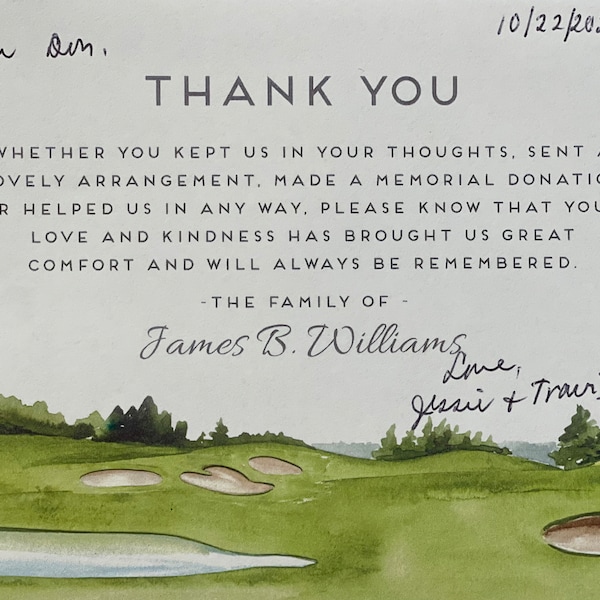 Don.
10/22/202
THANK YOU
WHETHER YOU KEPT US IN YOUR THOUGHTS, SENT A
OVELY ARRANGEMENT, MADE A MEMORIAL DONATIO
R HELPED US IN ANY WAY, PLEASE KNOW THAT YOU
LOVE AND KINDNESS HAS BROUGHT US GREAT
COMFORT AND WILL ALWAYS BE REMEMBERED.
-THE FAMILY OF -
James B. Williams
Love,
Jessie + Travis